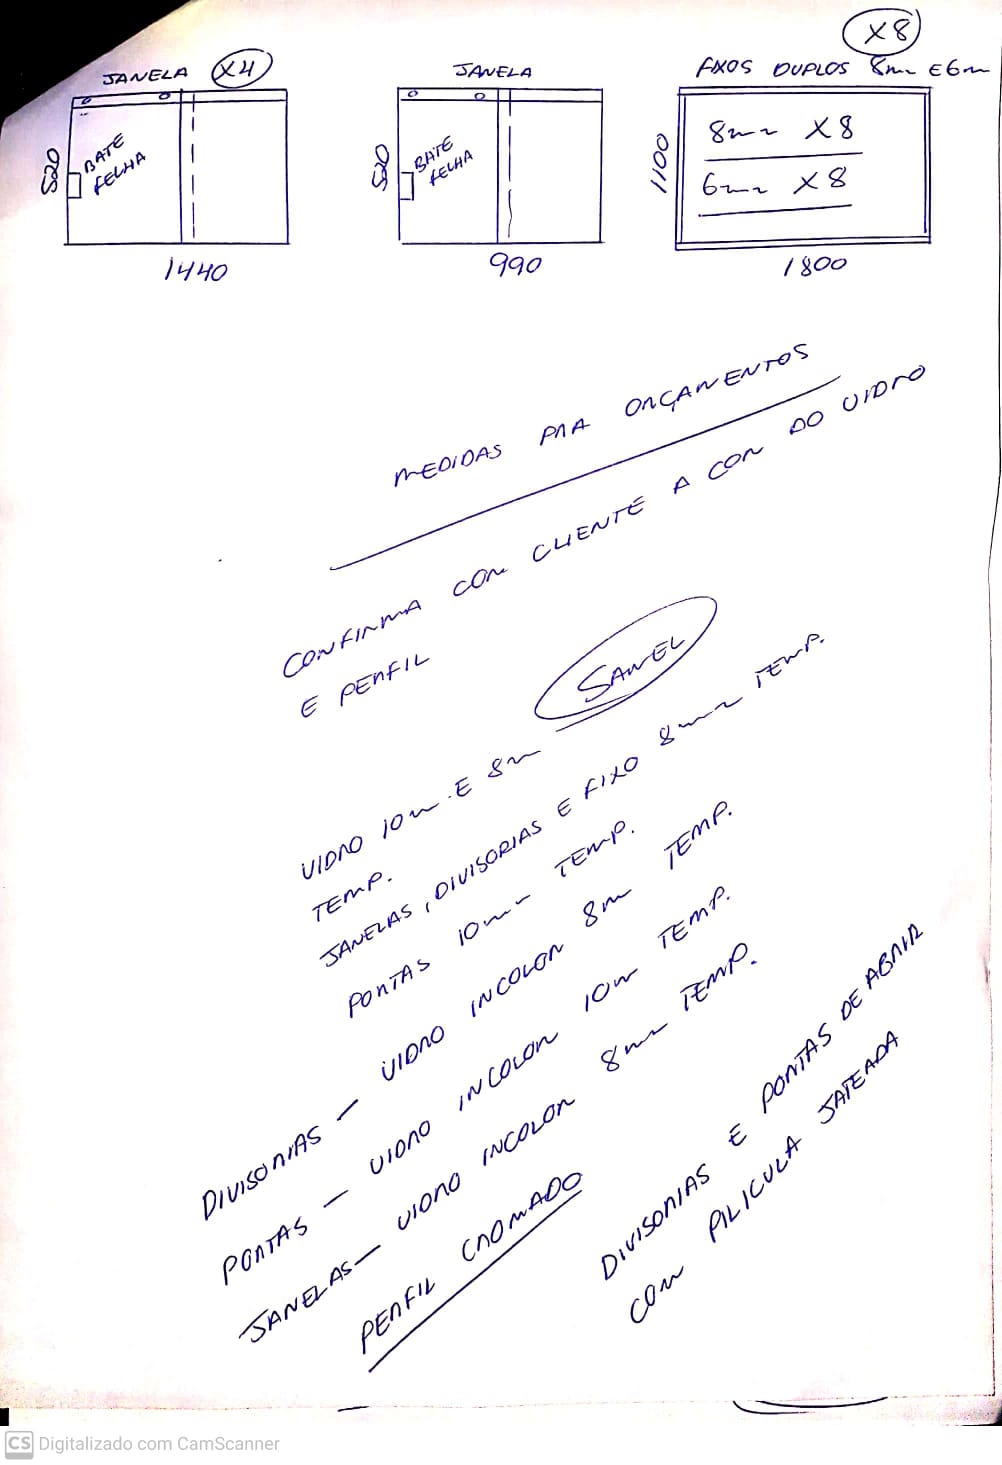 X8
JANELA X4
JANELA
FIXOS DUPLOS 8mm E 6m
520
BATE
FECHA
1440
520
BATE
FECHA
990
1100
8mm X8
6mm X8
1800
MEDIDAS PRA ORÇAMENTOS
CONFIRMA COM CLIENTE A COR DO VIDRO
E PERFIL
VIDRO 10m E 8m
TEMP.
JANELAS, DIVISORIAS E FIXO 8mm TEMP.
PORTAS 10mm TEMP.
DIVISORIAS – VIDRO INCOLOR 8m TEMP.
PORTAS – VIDRO INCOLOR 10m TEMP.
JANELAS – VIDRO INCOLOR 8mm TEMP.
PERFIL CROMADO
DIVISORIAS E PORTAS DE ABRIR
COM PILICULA JATEADA
CS Digitalizado com CamScanner